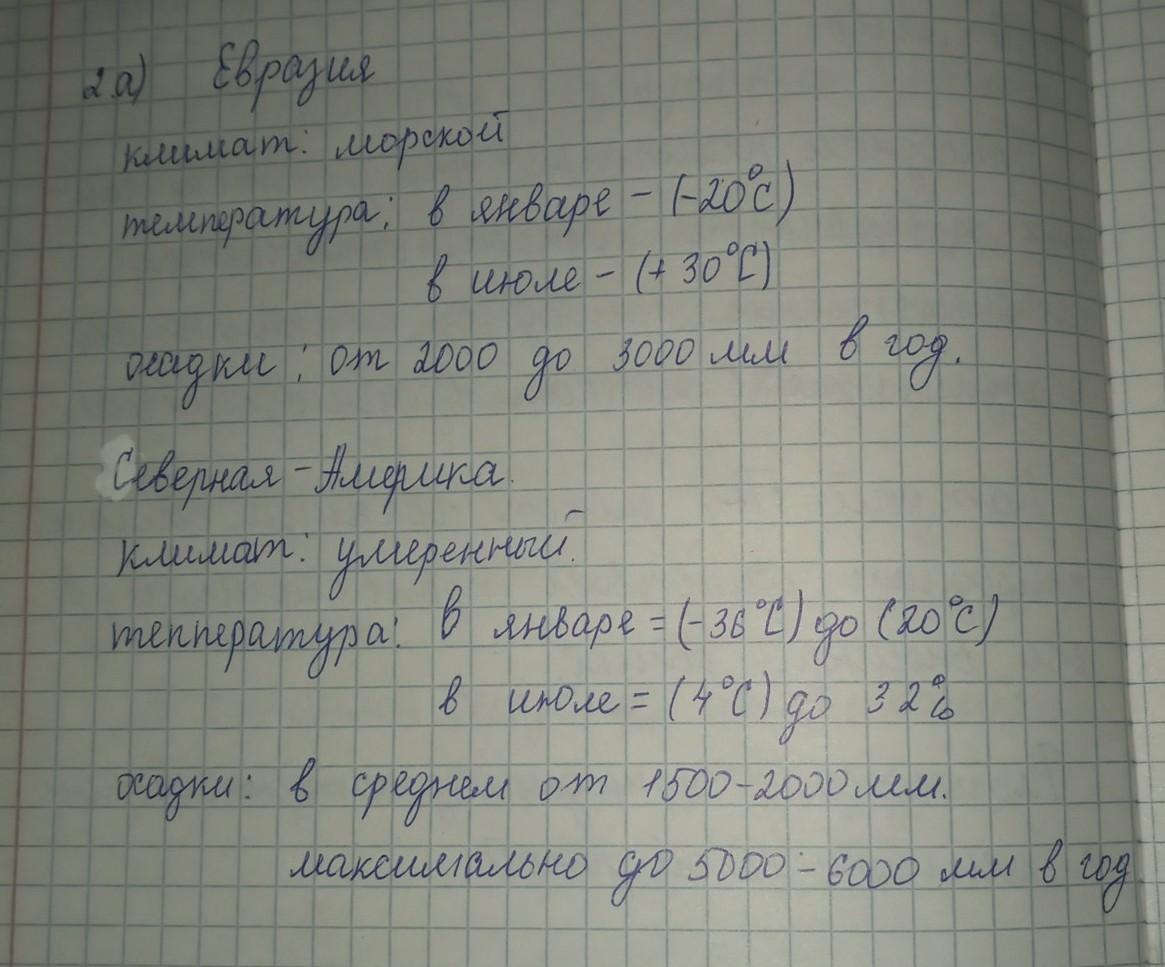 2.а) Евразия
климат: морской
температура: в январе - (-20°С)
в июле - (+30°С)
осадки: от 2000 до 3000 мм в год.
Северная-Америка.
климат: умеренный.
теппература: в январе = (-36°С) до (20°С)
в июле = (4°С) до 32°С
осадки: в среднем от 1500-2000 мм.
максимально до 5000-6000 мм в год